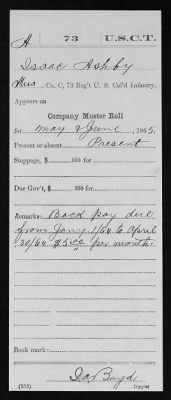 A 73 U.S.C.T.
Isaac Ashby
Co. C, 73 Reg't U. S. Col'd Infantry.
Appears on
Company Muster Roll
for May & June, 1865.
Present or absent Present
Stoppage, $ 100 for
Due Gov't, $ 100 for
Remarks: Back pay due
from Jany. 1/64 to April
30/64 $3.00 per month
Book mark:
Boyd
(356) Copyist.